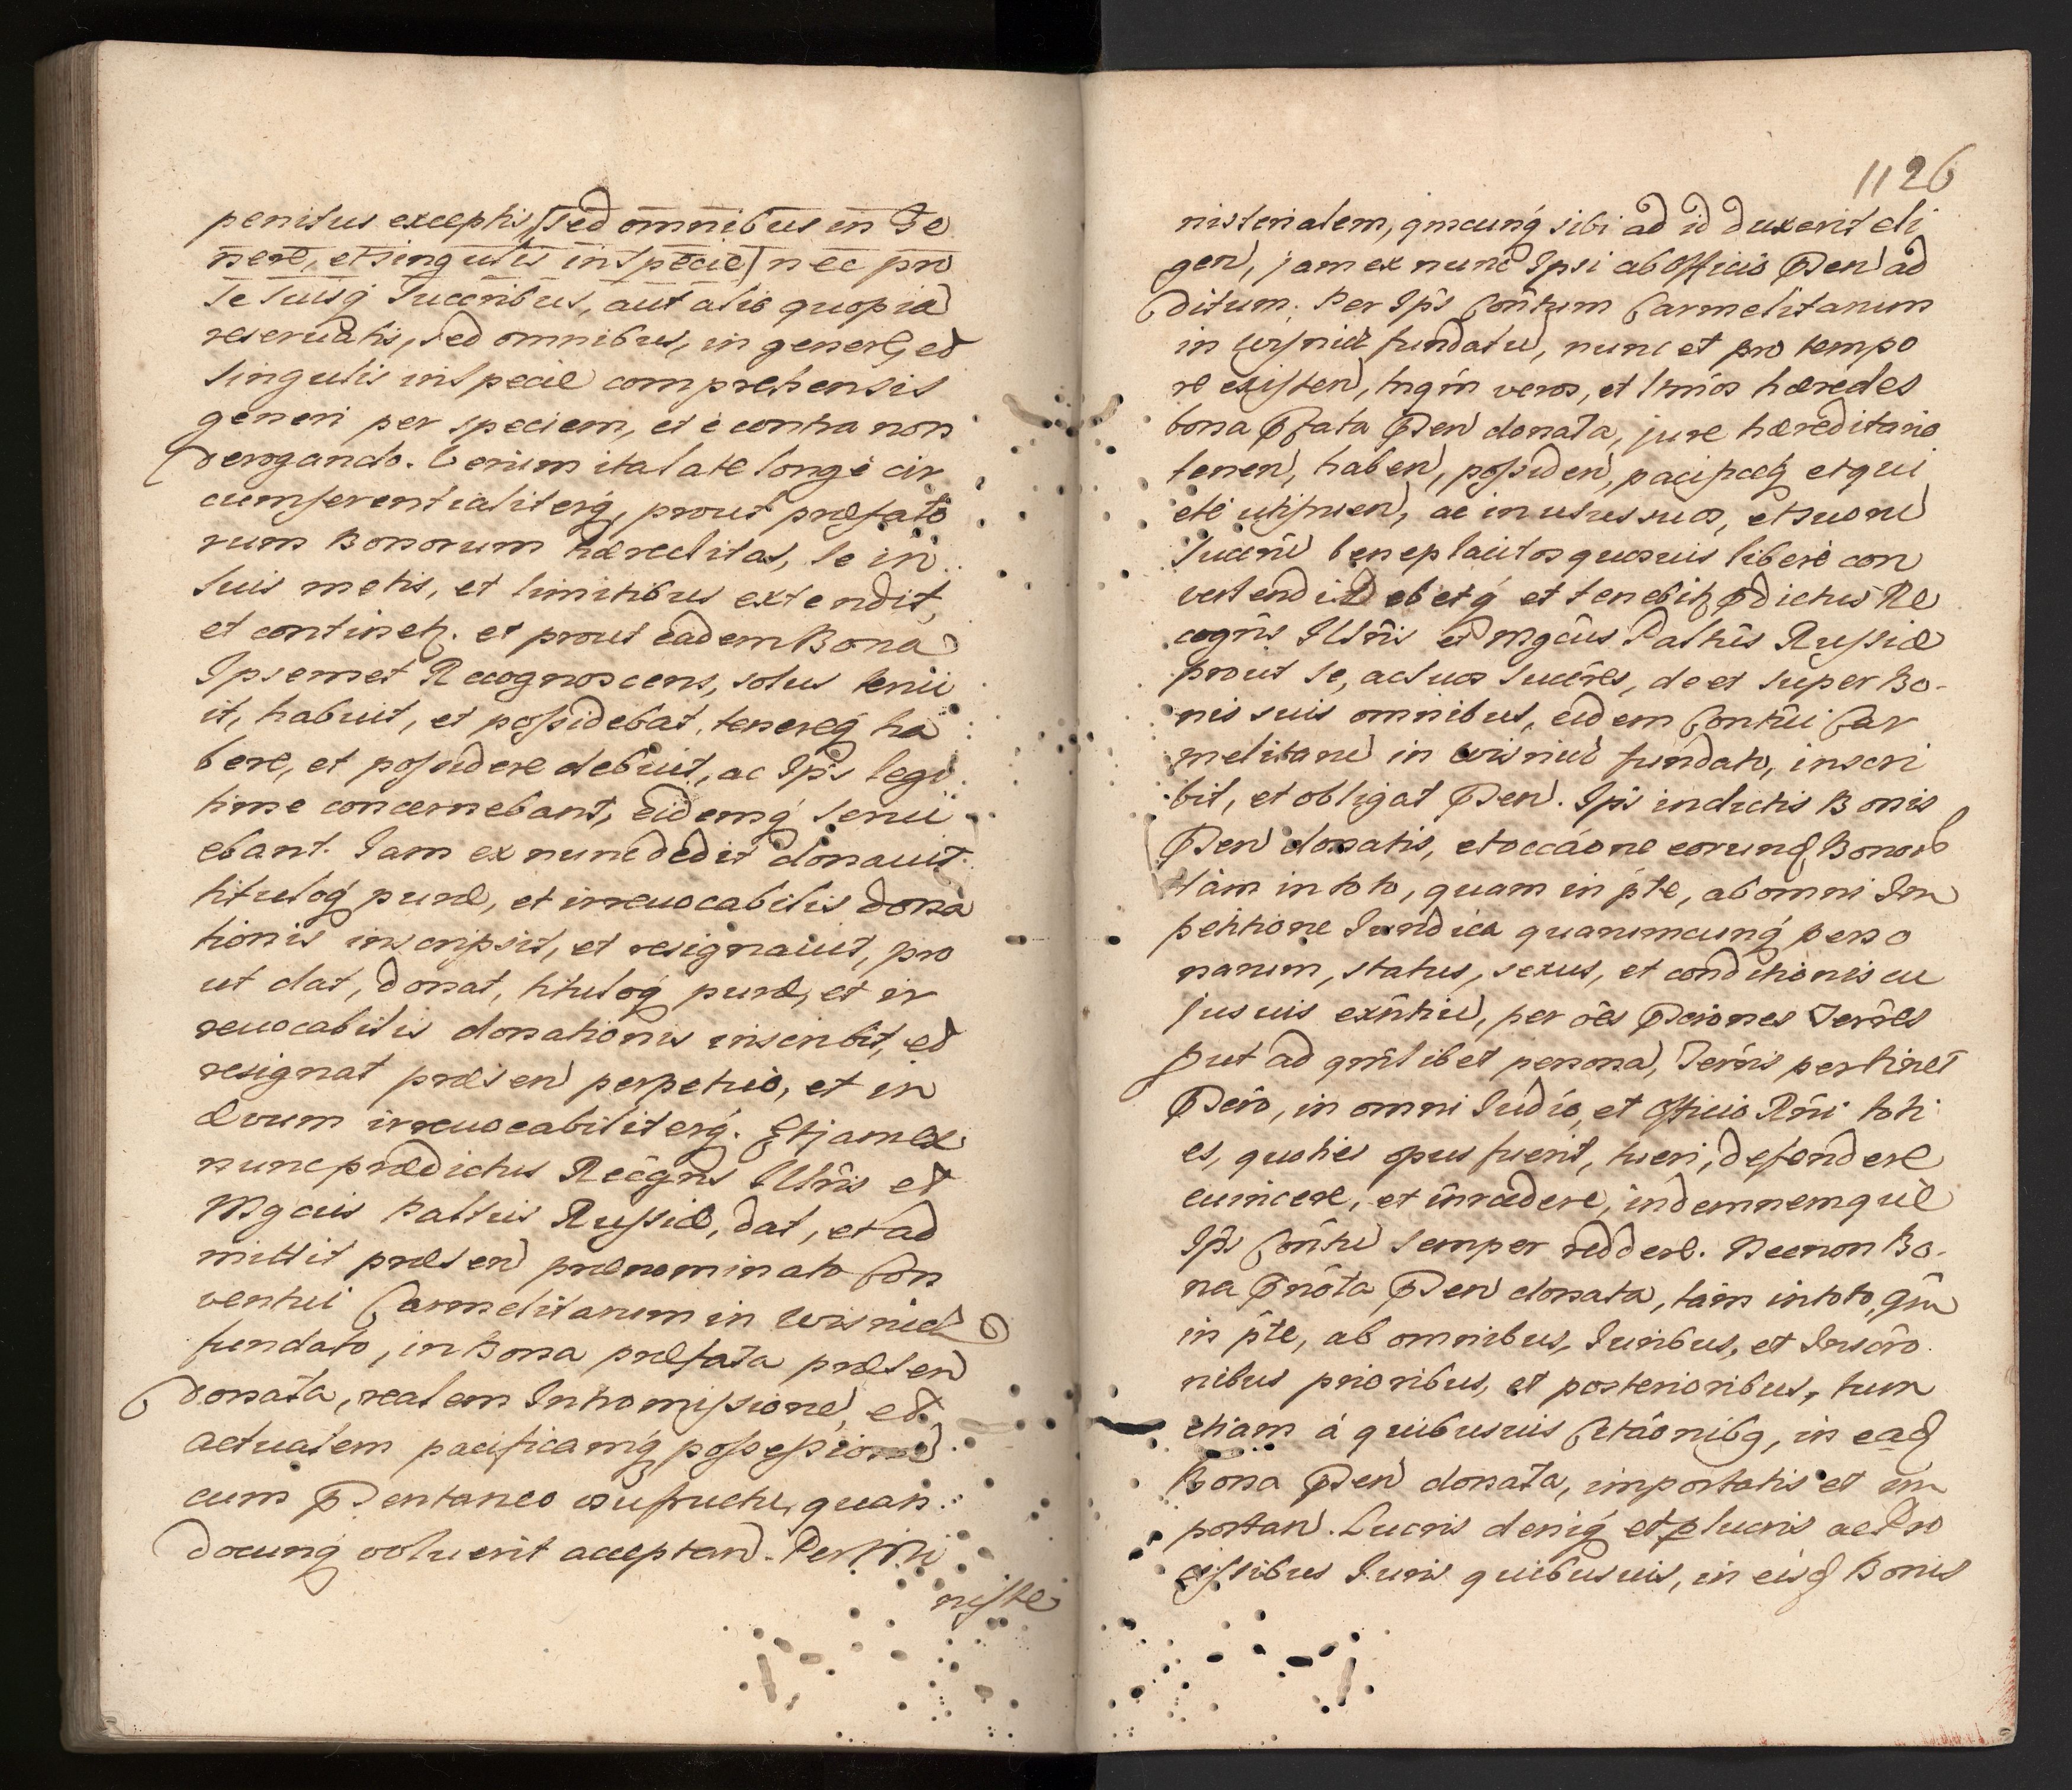 penitus exceptis [sed omnibus in Ge
nere, et singulis in specie] nec pro
se suisq́ succribus, aut alio quopia
reseruatis, sed omnibus, in genere, et
singulis in specie comprehensis
generi per speciem, et è contra non
derogando. Verum ita late longè cir
cumferentialiterq́, prout præfato
rum Bonorum hæreditas, se in
suis metis, et limitibus extendit,
et continetz. et prout eadem Bona
Ipsemet Recognoscens, solus tenu
it, habuit, et possidebat, tenereq́ ha
bere, et possidere debuit, ac Ips legi
time concernebant, eidemq́ serui
ebant. Iam ex nunc dedit donauit.
tituloq́ puræ, et irreuocabilis dona
tionis inscripsit, et resignauit, pro
ut dat, donat, tituloq́ puræ, et ir
reuocabilis donationis inscribit, et
resignat præsen perpetuò, et in
ævum irreuocabiliterq́. Et jam ex
nunc prædictus Recgns Illris et
Mgcus Palnus Russiæ, dat, et ad
mittit præsen prænominato Con
ventui Carmelitarum in Wisnicz
fundato, in Bona præfata præsen
donata, realem Intromissione, et
actualem pacificamq́ possessione
cum Pntaneo usufructu, quan
docunq́ voluerit acceptan. Per Mi
niste
1126
nisterialem, qmcunq́ sibi ad id duxerit eli
gen, jam ex nunc Ipsi ab Officio Psen ad
ditum. Per Ips Contum Carmelitarum
in Wisnicz fundatu, nunc et pro tempo
re existen, tnqm veros, et ltmos hæredes
bona Pfata Psen donata, jure hæreditario
tenen, haben, possiden, pacificeq́ et qui
etè utifruen, ac in usus suos, et suoru
succru beneplacitos quosuis liberè con
verten di Debetq́ et tenebitz Pdictus Re
cogns Illris et Mgcus Paltus Russiæ
prout se, ac suos succres, de et super Bo-
nis suis omnibus, eidem Contui Car
melitaru in Wisnicz fundato, inscri
bit, et obligat Psen. Ips in dictis Bonis
Psen donatis, et occaone eorund Bonor
tàm in toto, quam in pte, ab omni Im
petitione Iuridica quarumcunq́ perso
narum, status, sexus, et conditionis cu
jusuis exntiu, per oes Pscriones Terres
put ad qmlibet persona, Terris pertinet
Pscro, in omni Iudio, et Officio Rni toti
es, quoties opus fuerit, tueri, defendere
euincere, et inrcedere, indemnemque
Ips Contu semper reddere. Necnon Bo-
na Pnota Psen donata, tàm in toto, qm
in pte, ab omnibus, Iuribus, et Inscro
nibus prioribus, et posterioribus, tum
etiam à quibusuis Cttaonibq, in ead
Bona Psen donata, importatis et im
portan. Lucris deniq́ et plucris ac Pro
cessibus Iuris quibusuis, in eisd Bonis